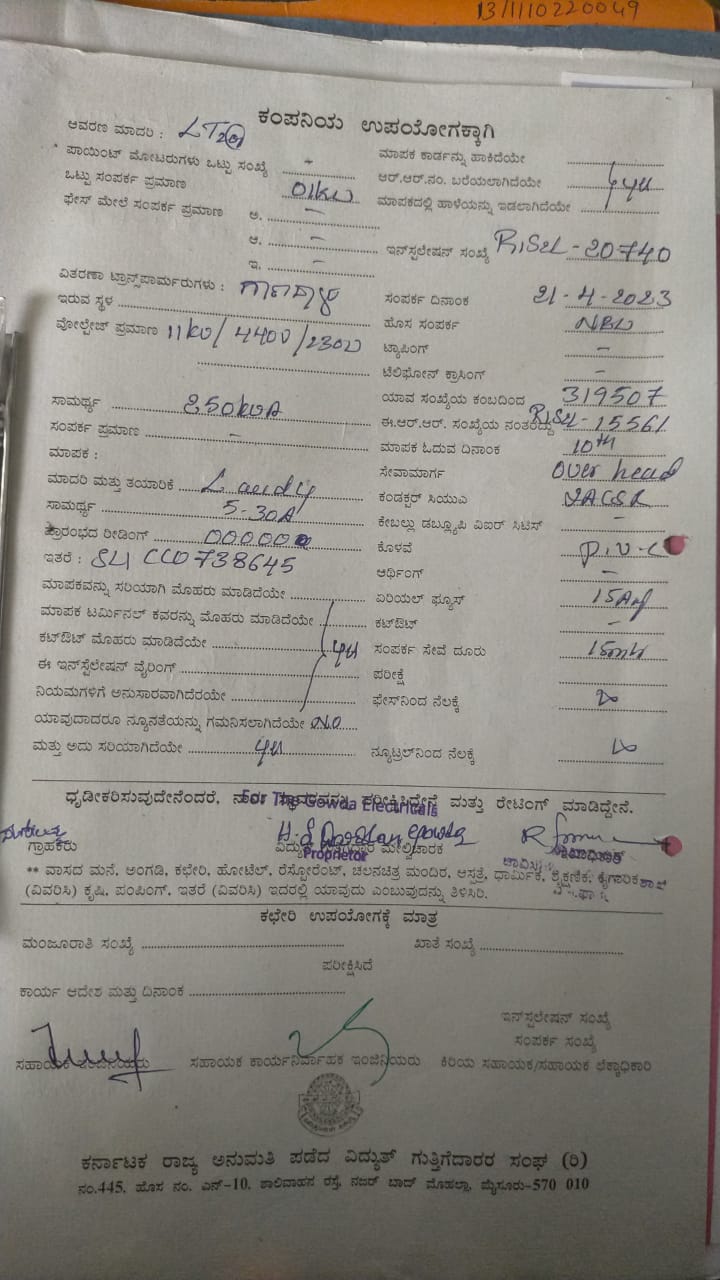 13/1110220049
ಕಂಪನಿಯ ಉಪಯೋಗಕ್ಕಾಗಿ
ಆವರಣ ಮಾದರಿ : LT2
ಪಾಯಿಂಟ್ ಮೋಟರುಗಳು ಒಟ್ಟು ಸಂಖ್ಯೆ -
ಒಟ್ಟು ಸಂಪರ್ಕ ಪ್ರಮಾಣ 01KW
ಫೇಸ್ ಮೇಲೆ ಸಂಪರ್ಕ ಪ್ರಮಾಣ ಅ. -
ಆ. -
ಇ. -
ವಿತರಣಾ ಟ್ರಾನ್ಸ್‌ಪಾರ್ಮರುಗಳು :
ಇರುವ ಸ್ಥಳ
ವೋಲ್ಟೇಜ್ ಪ್ರಮಾಣ 11KV/440V/230V
ಸಾಮರ್ಥ್ಯ 250KVA
ಸಂಪರ್ಕ ಪ್ರಮಾಣ -
ಮಾಪಕ :
ಮಾದರಿ ಮತ್ತು ತಯಾರಿಕೆ
ಸಾಮರ್ಥ್ಯ 5-30A
ಪ್ರಾರಂಭದ ರೀಡಿಂಗ್ 000000
ಇತರೆ : SLI CCO738645
ಮಾಪಕವನ್ನು ಸರಿಯಾಗಿ ಮೊಹರು ಮಾಡಿದೆಯೇ
ಮಾಪಕ ಟರ್ಮಿನಲ್ ಕವರನ್ನು ಮೊಹರು ಮಾಡಿದೆಯೇ
ಕಟ್‌ಔಟ್ ಮೊಹರು ಮಾಡಿದೆಯೇ
ಈ ಇನ್‌ಸ್ಟಲೇಷನ್ ವೈರಿಂಗ್
ನಿಯಮಗಳಿಗೆ ಅನುಸಾರವಾಗಿದೆರೆಯೇ
ಯಾವುದಾದರೂ ನ್ಯೂನತೆಯನ್ನು ಗಮನಿಸಲಾಗಿದೆಯೇ NO
ಮತ್ತು ಅದು ಸರಿಯಾಗಿದೆಯೇ
ಮಾಪಕ ಕಾರ್ಡನ್ನು ಹಾಕಿದೆಯೇ
ಆರ್.ಆರ್.ನಂ. ಬರೆಯಲಾಗಿದೆಯೇ
ಮಾಪಕದಲ್ಲಿ ಹಾಳೆಯನ್ನು ಇಡಲಾಗಿದೆಯೇ
ಇನ್‌ಸ್ಟಲೇಷನ್ ಸಂಖ್ಯೆ RJSLL-20740
ಸಂಪರ್ಕ ದಿನಾಂಕ 21-4-2023
ಹೊಸ ಸಂಪರ್ಕ
ಟ್ಯಾಪಿಂಗ್ -
ಟೆಲಿಫೋನ್ ಕ್ರಾಸಿಂಗ್ -
ಯಾವ ಸಂಖ್ಯೆಯ ಕಂಬದಿಂದ 319507
ಈ.ಆರ್.ಆರ್. ಸಂಖ್ಯೆಯ ನಂತರದ್ದು RJSLL-15561
ಮಾಪಕ ಓದುವ ದಿನಾಂಕ 10th
ಸೇವಾಮಾರ್ಗ Over head
ಕಂಡಕ್ಟರ್ ಸಿಯುಎ ACSR
ಕೇಬಲ್ಲು ಡಬ್ಲ್ಯೂಪಿ ವಿಐರ್ ಸಿಟಿಸ್ -
ಕೊಳವೆ P.V.C
ಆರ್ಥಿಂಗ್ -
ಏರಿಯಲ್ ಫ್ಯೂಸ್ 15Am
ಕಟ್‌ಔಟ್ -
ಸಂಪರ್ಕ ಸೇವೆ ದೂರು 15mtr
ಪರೀಕ್ಷೆ
ಫೇಸ್‌ನಿಂದ ನೆಲಕ್ಕೆ
ನ್ಯೂಟ್ರಲ್‌ನಿಂದ ನೆಲಕ್ಕೆ
ಧೃಡೀಕರಿಸುವುದೇನೆಂದರೆ, ನಾನು ಸ್ಥಾವರವನ್ನು ಪರೀಕ್ಷಿಸಿದ್ದೇನೆ ಮತ್ತು ರೇಟಿಂಗ್ ಮಾಡಿದ್ದೇನೆ.
For The Gowda Electricals
ಗ್ರಾಹಕರು ವಿದ್ಯುತ್ ಗುತ್ತಿಗೆದಾರ ಮೇಲ್ವಿಚಾರಕ
Proprietor
** ವಾಸದ ಮನೆ, ಅಂಗಡಿ, ಕಛೇರಿ, ಹೋಟೆಲ್, ರೆಸ್ಟೋರೆಂಟ್, ಚಲನಚಿತ್ರ ಮಂದಿರ, ಆಸ್ಪತ್ರೆ, ಧಾರ್ಮಿಕ, ಶೈಕ್ಷಣಿಕ, ಕೈಗಾರಿಕ
(ವಿವರಿಸಿ) ಕೃಷಿ, ಪಂಪಿಂಗ್, ಇತರೆ (ವಿವರಿಸಿ) ಇದರಲ್ಲಿ ಯಾವುದು ಎಂಬುವುದನ್ನು ತಿಳಿಸಿರಿ.
ಕಛೇರಿ ಉಪಯೋಗಕ್ಕೆ ಮಾತ್ರ
ಮಂಜೂರಾತಿ ಸಂಖ್ಯೆ ಖಾತೆ ಸಂಖ್ಯೆ
ಪರೀಕ್ಷಿಸಿದೆ
ಕಾರ್ಯ ಆದೇಶ ಮತ್ತು ದಿನಾಂಕ
ಇನ್‌ಸ್ಟಲೇಷನ್ ಸಂಖ್ಯೆ
ಸಂಪರ್ಕ ಸಂಖ್ಯೆ
ಸಹಾಯಕ ಇಂಜಿನಿಯರು ಸಹಾಯಕ ಕಾರ್ಯನಿರ್ವಾಹಕ ಇಂಜಿನಿಯರು ಕಿರಿಯ ಸಹಾಯಕ/ಸಹಾಯಕ ಲೆಕ್ಕಾಧಿಕಾರಿ
ಕರ್ನಾಟಕ ರಾಜ್ಯ ಅನುಮತಿ ಪಡೆದ ವಿದ್ಯುತ್ ಗುತ್ತಿಗೆದಾರರ ಸಂಘ (ರಿ)
ನಂ.445, ಹೊಸ ನಂ. ಎನ್-10, ಶಾಲಿವಾಹನ ರಸ್ತೆ, ನಜರ್ ಬಾದ್ ಮೊಹಲ್ಲಾ, ಮೈಸೂರು-570 010